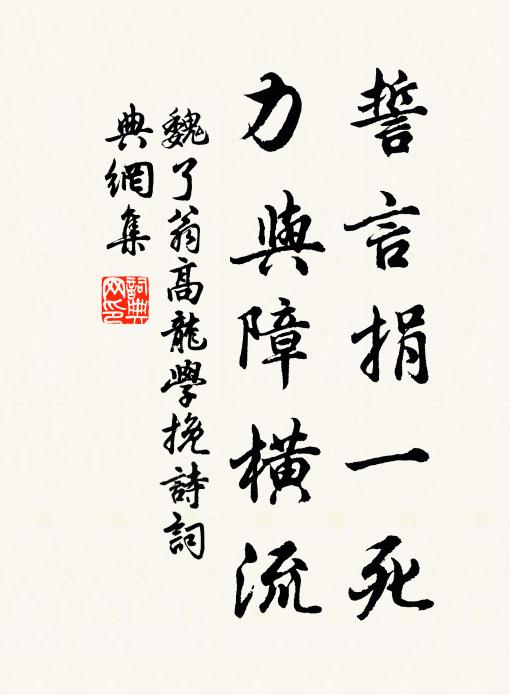 誓言捐一死
力與障橫流
魏了翁高龍學挽詩詞
典網集
詞典网印